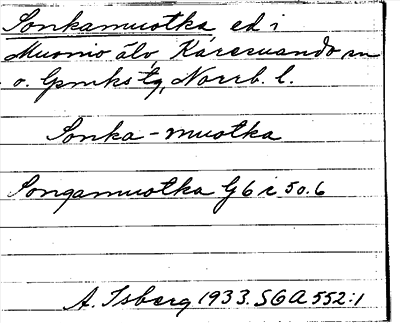 Sonkamuotka ed i
Muonio älv, Karesuando sn
o. lpmks tg, Norrb. l.
Sonka-muotka
Songamuotka G6 i 50.6
A. Isberg 1933. SOA 552:1